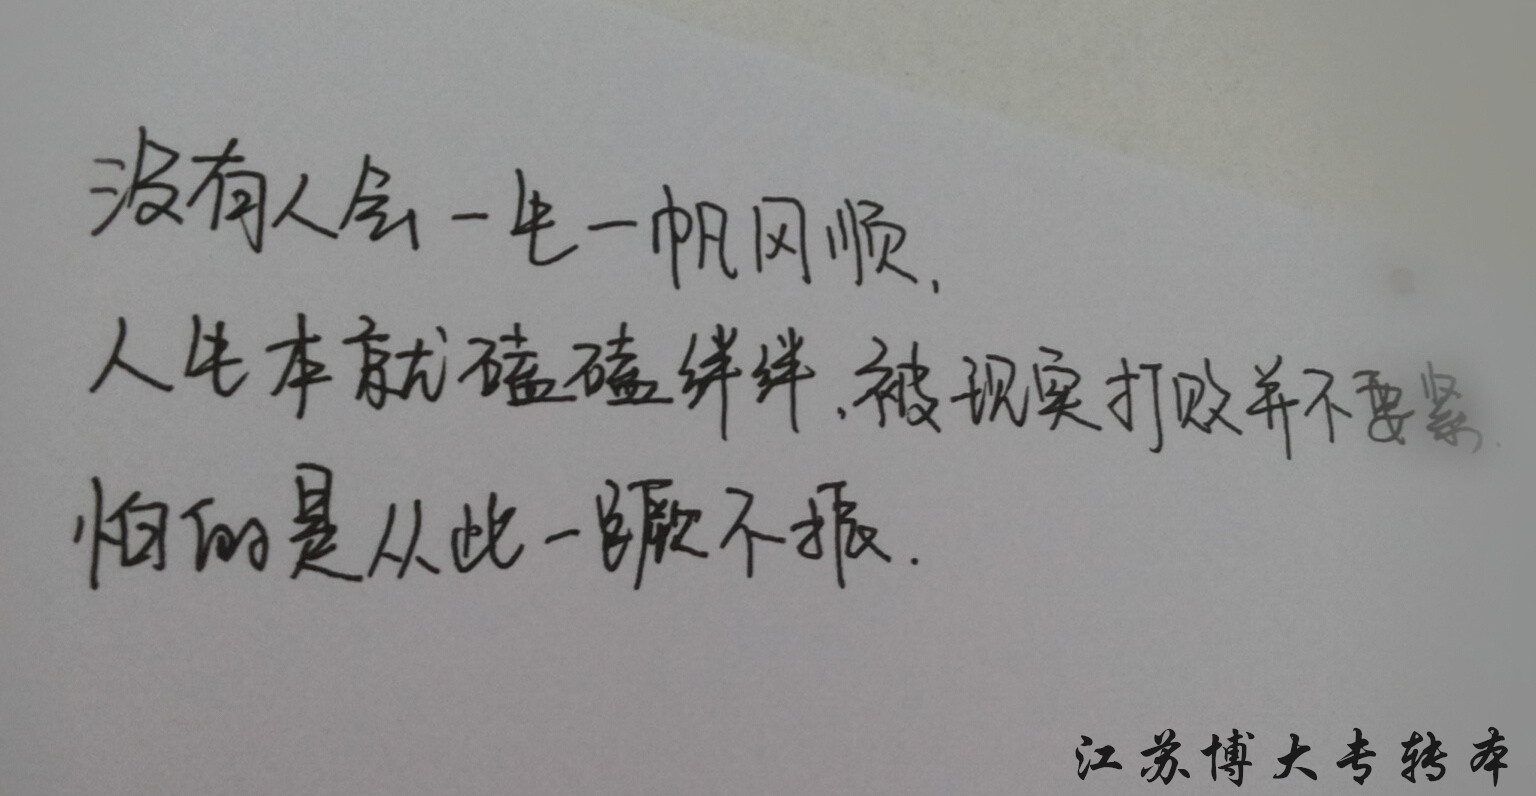 没有人会一生一帆风顺,
人生本就磕磕绊绊,被现实打败并不要紧.
怕的是从此一蹶不振.
江苏博大专转本